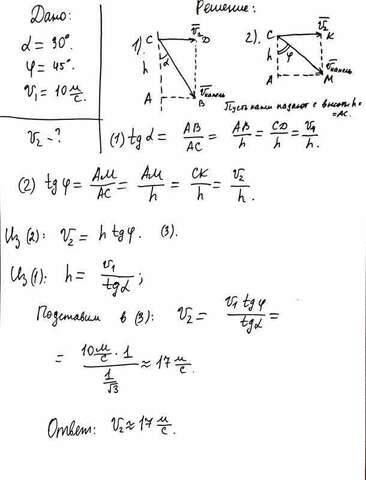 Дано:
α = 30°.
φ = 45°.
V₁ = 10 м/с.
V₂ - ?
Решение:
1).
C
V̅₂
D
α
h
A
B
V̅капель
2).
C
V̅₂
K
h
φ
A
M
V̅капель
Пусть капли падают с высоты h =
= AC.
(1) tg α = AB/AC = AB/h = CD/h = V₁/h.
(2) tg φ = AM/AC = AM/h = CK/h = V₂/h.
Из (2): V₂ = h tg φ. (3).
Из (1): h = V₁/tg α ;
Подставим в (3): V₂ = V₁ tg φ/tg α =
= (10 м/с · 1)/(1/√3) ≈ 17 м/с.
Ответ: V₂ ≈ 17 м/с.